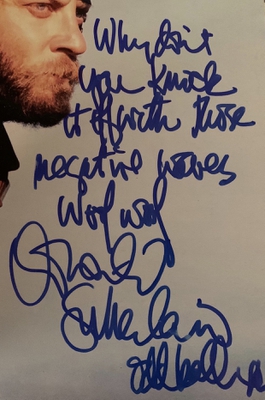 Why don't
you knock
it off with those
negative waves
Woof woof
Donald
Sutherland
Oddball